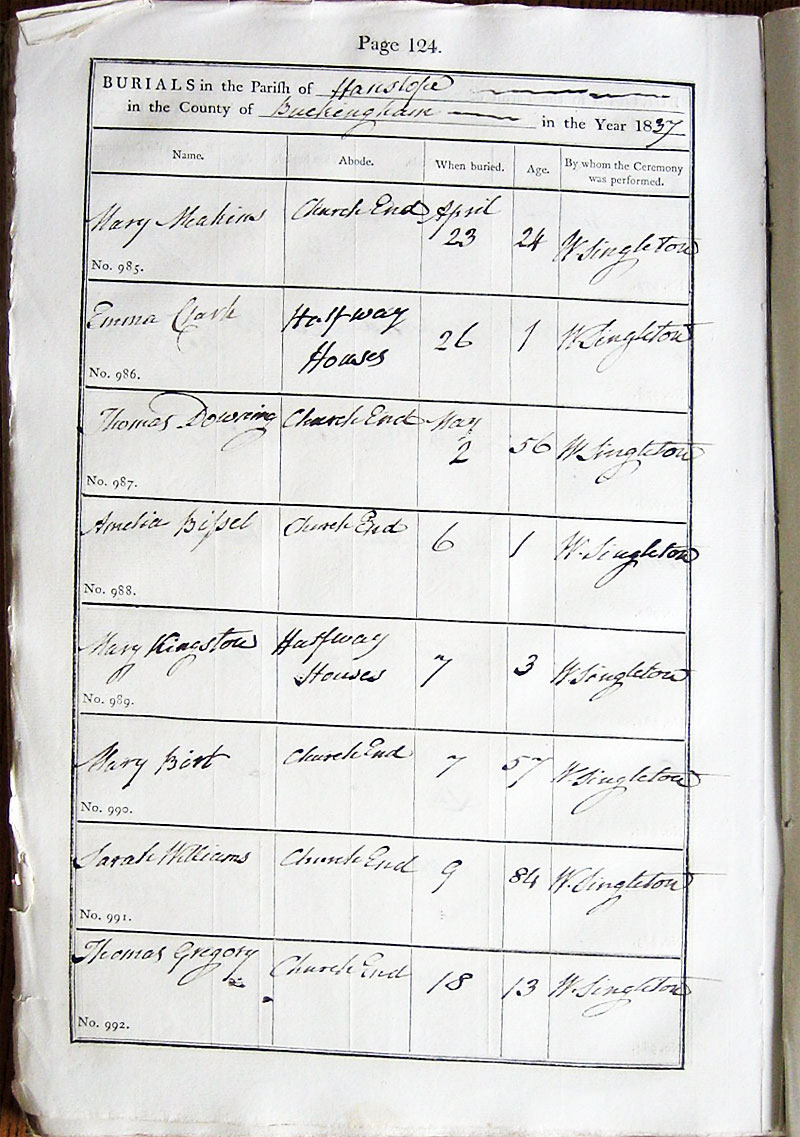 Page 124.
BURIALS in the Parish of Hanslope
in the County of Buckingham in the Year 1837
Name. Abode. When buried. Age. By whom the Ceremony was performed.
Mary Meakins Church End April 23 24 W Singleton
No. 985.
Emma Clark Halfway Houses 26 1 W Singleton
No. 986.
Thomas Downing Church End May 2 56 W Singleton
No. 987.
Amelia Bissel Church End 6 1 W. Singleton
No. 988.
Mary Kingston Halfway Houses 7 3 W Singleton
No. 989.
Mary Birt Church End 7 57 W Singleton
No. 990.
Sarah Williams Church End 9 84 W. Singleton
No. 991.
Thomas Gregory Church End 18 13 W Singleton
No. 992.